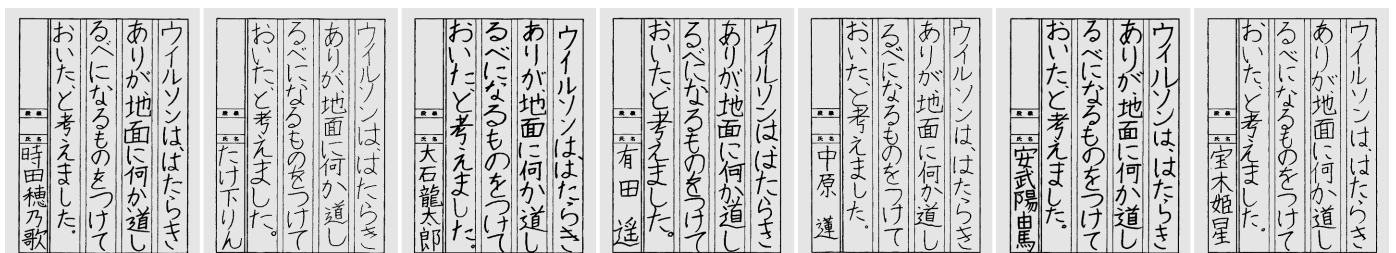 ウイルソンは、はたらき
ありが、地面に何か道し
るべになるものをつけて
おいた、と考えました。
段級
氏名
時田穂乃歌
ウイルソンは、はたらき
ありが、地面に何か道し
るべになるものをつけて
おいた、と考えました。
段級
氏名
たけ下りん
ウイルソンは、はたらき
ありが、地面に何か道し
るべになるものをつけて
おいた、と考えました。
段級
氏名
大石龍太郎
ウイルソンは、はたらき
ありが、地面に何か道し
るべになるものをつけて
おいた、と考えました。
段級
氏名
有田遥
ウイルソンは、はたらき
ありが、地面に何か道し
るべになるものをつけて
おいた、と考えました。
段級
氏名
中原蓮
ウイルソンは、はたらき
ありが、地面に何か道し
るべになるものをつけて
おいた、と考えました。
段級
氏名
安武陽由馬
ウイルソンは、はたらき
ありが、地面に何か道し
るべになるものをつけて
おいた、と考えました。
段級
氏名
宝木姫星